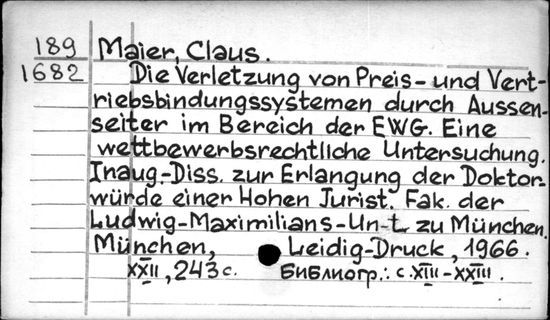 189 Maier, Claus.
1682 Die Verletzung von Preis- und Vert-
riebsbindungssystemen durch Aussen-
seiter im Bereich der EWG. Eine
wettbewerbsrechtliche Untersuchung.
Inaug.-Diss. zur Erlangung der Doktor-
würde einer Hohen Jurist. Fak. der
Ludwig-Maximilians-Un-t. zu München.
München, Leidig-Druck, 1966.
XXII, 243 с. Библиогр.: с. XIII-XXIII.